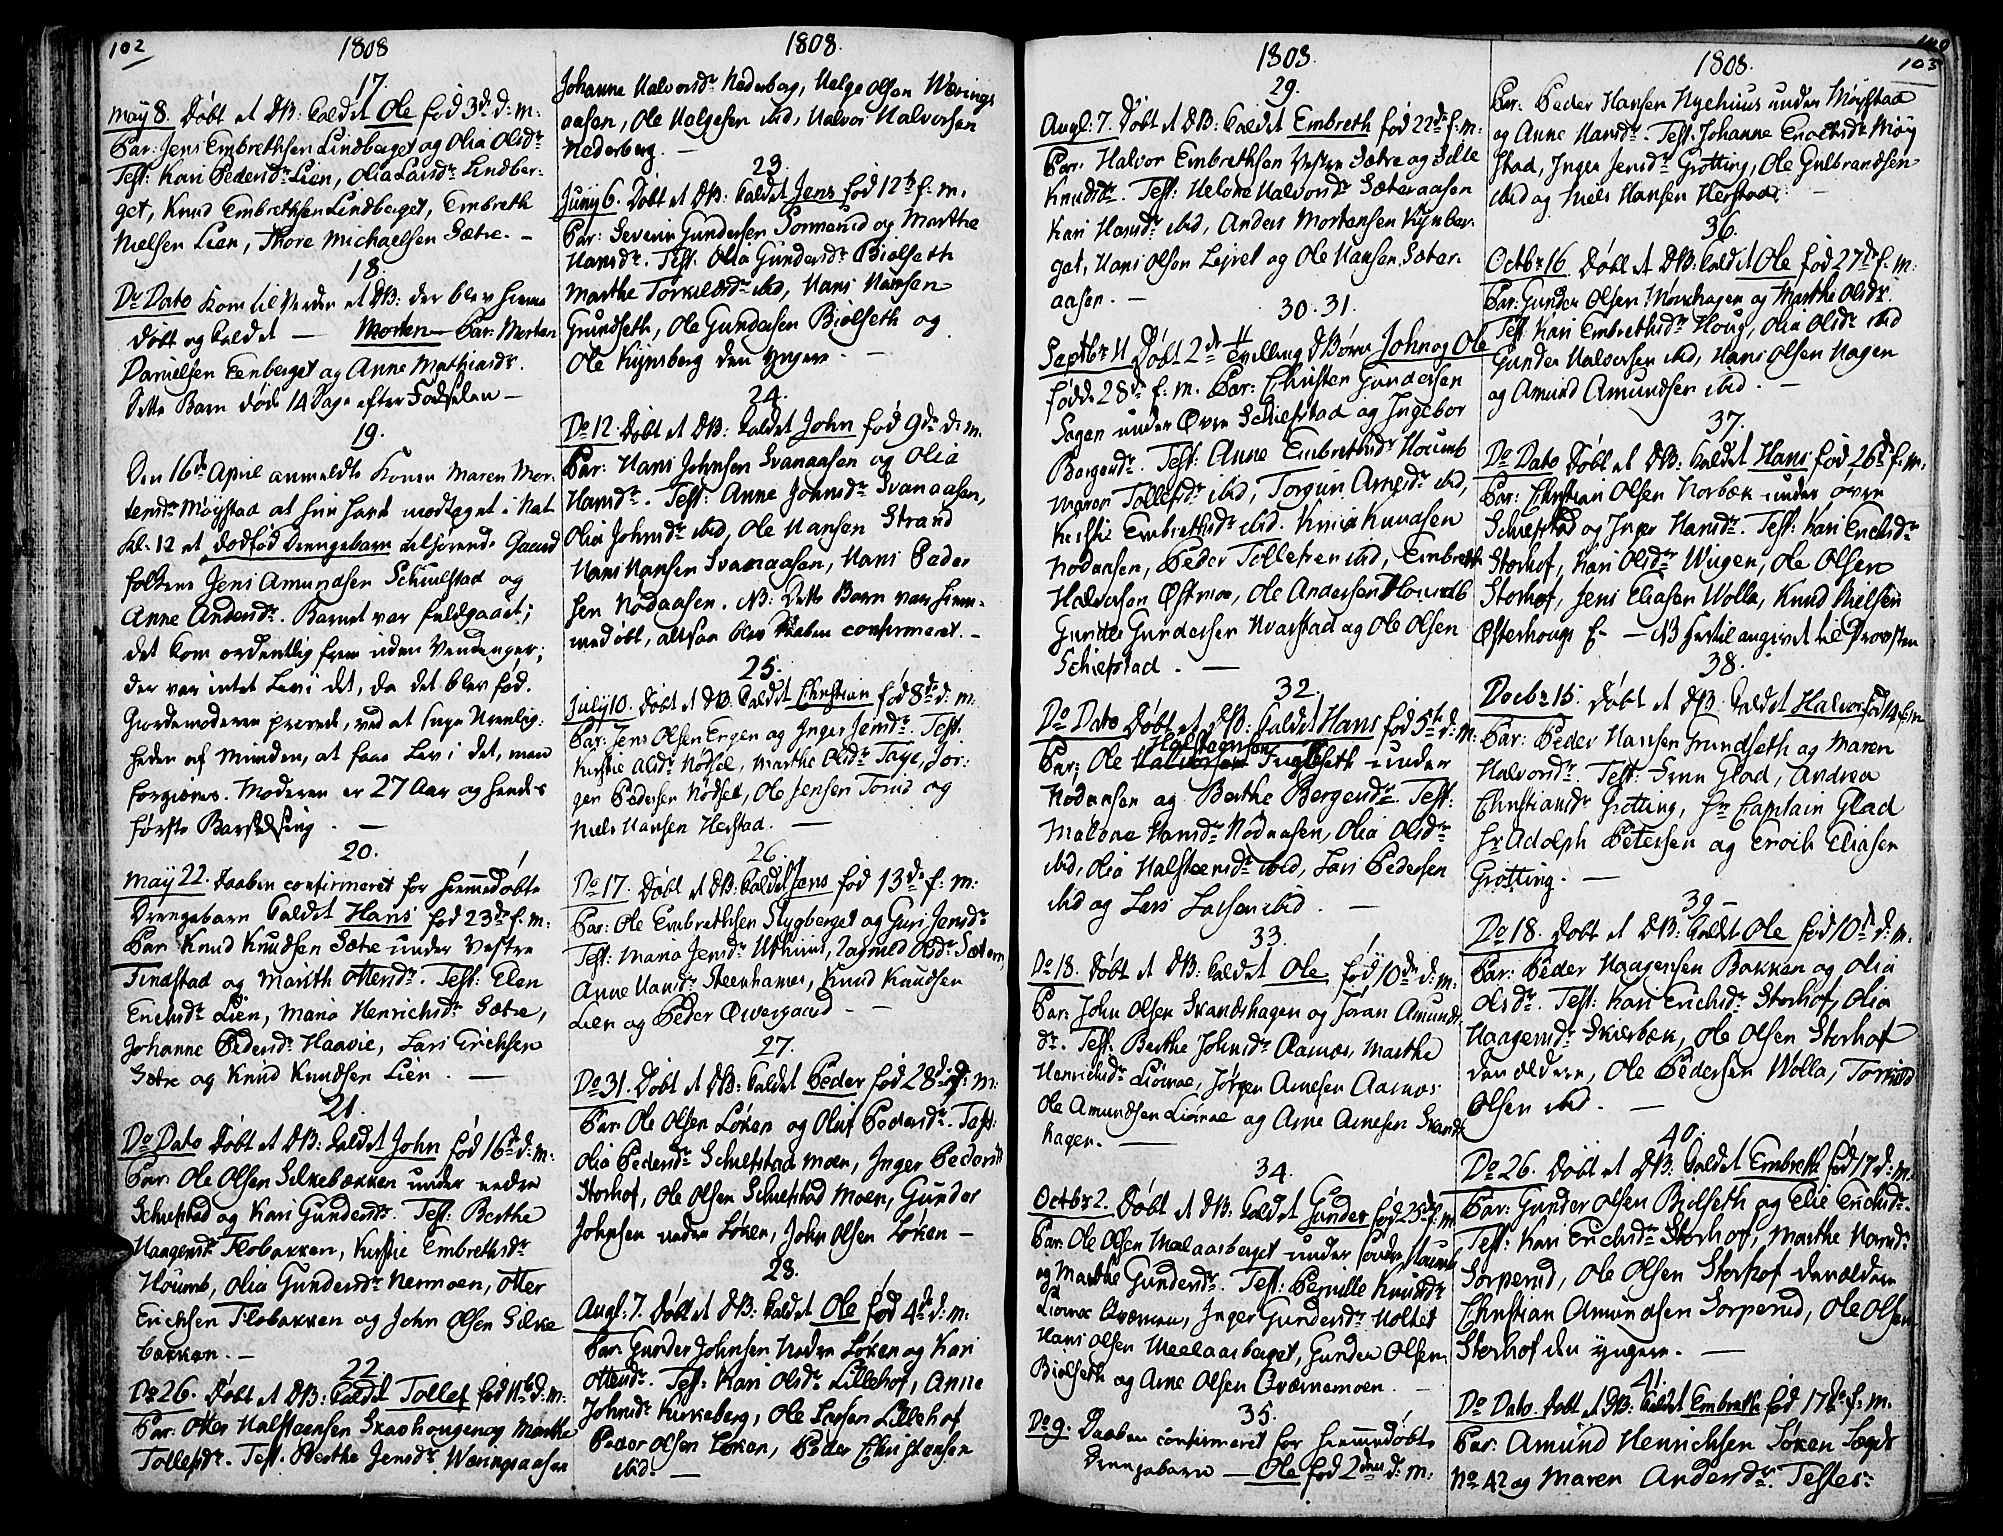 102
1808
17.
May 8. Døbt et DB: kaldet Ole fød 3de d: m:
Par: Jens Embrethsen Lindberget og Olia Olsdr
Test: Kari Pedersdr Lien, Olia Larsdr Lindber-
get, Knud Embrethsen Lindberget, Embreth
Nielsen Lien, Thore Michaelsen Sætre. –
18.
Do Dato kom til Verden et DB: der blev hieme
døbt og kaldet — Morten – Par: Morten
Danielsen Eenberget og Anne Mathiasdr.
Dette Barn døde 14 Dage efter Fødselen –
19.
Den 16de April anmeldte Konen Maren Mor-
tensdr Møystad at hun havde modtaget i Nat
Kl: 12 et dødfød Drengebarn tilhørende Gaard
folkene Jens Amundsen Schiulstad og
Anne Andersdr. Barnet var fuldgaaet;
det kom ordentlig frem uden Vendinger;
der var intet Lev i det, da det blev fød.
Giordemoderen prøvede, ved at suge Ureenlig-
heden af Munden, at faae Lev i det, men
forgieves. Moderen er 27 Aar og hendes
første Barselseng. —
20.
May 22. Daaben confirmeret for hiemmedøbte
Drengebarn kaldet Hans fød 23de f: m:
Par: Knud Knudsen Sætre under Vestre
Findstad og Marith Ottersdr. Test: Elen
Erichsdr Lien, Maria Henrichsdr Sætre,
Johanne Pedersdr Haavie, Lars Erichsen
Sætre og Knud Knudsen Lien. —
21.
Do Dato Døbt et DB: kaldet John fød 16de d: m:
Par: Ole Olsen Silkebækken under nedre
Schiefstad og Kari Gundersdr. Test: Berthe
Haagensdr Flobakken, Kirstie Embrethsdr
Houmb, Olia Gundersdr Nermoen, Otter
Erichsen Flobakken og John Olsen Silke
bækken. —
22.
Do 26. Døbt et DB: kaldet Tollef fød 11te d: m:
Par: Otter Halsteensen Skaahougen og Marthe
Tollefsdr. Test: Berthe Jensdr Wæringsaasen
1808.
Johanne Halvorsdr Nederberg, Helge Olsen Wærings
aasen, Ole Helgesen ibid, Halvor Halvorsen
Nederberg. —
23.
Juny 6. Døbt et DB: kaldet Jens fød 12te f: m.
Par: Severin Gundersen Sormerud og Marthe
Hansdr. Test: Olia Gundersdr Biølseth
Marthe Torkildsdr ibid, Hans Hansen
Grundseth, Ole Gundersen Biølseth og
Ole Kiynsberg den yngere. —
24.
Do 12. Døbt et DB: kaldet John fød 9de d: m.
Par: Hans Johnsen Svenaasen og Olia
Hansdr. Test: Anne Johnsdr Svenaasen,
Olia Johnsdr ibid, Ole Hansen Strand
Hans Hansen Svenaasen, Hans Peder
sen Nodaasen. NB: Dette Barn var hiem-
medøbt, altsaa blev Daaben confirmeret. –
25.
July 10. Døbt et DB: kaldet Christian fød 8de d: m.
Par: Jens Olsen Ergen og Inger Jensdr. Test:
Kirstie Olsdr Nodset, Marthe Olsdr Tage, Jør-
gen Pedersen Nodset, Ole Jensen Torud og
Niels Hansen Herstad. —
26.
Do 17. Døbt et DB: kaldet Jens fød 13de f: m:
Par: Ole Embrethsen Stygberget og Guri Jensdr
Test: Maria Jensdr Uthuus, Ragnild Olsdr Sætern,
Anne Hansdr Steenhamer, Knud Knudsen
Lien og Peder Øvergaard —
27.
Do 31. Døbt et DB: kaldet Peder fød 28de f: m:
Par: Ole Olsen Løken og Oluf Pedersdr. Test:
Olia Pedersdr Schiefstad moen, Inger Pedersdr
Storhof, Ole Olsen Schiefstad Moen, Gunder
Johnsen neder Løken, John Olsen Løken –
28.
Augt: 7. Døbt et DB: kaldet Ole fød 4de d: m:
Par: Gunder Johnsen Neden Løken og Kari
Ottersdr. Test: Kari Olsdr Lillehof, Anne
Johnsdr Kirkeberg, Ole Larsen Lillehof
Peder Olsen Løken, Peder Christensen
ibid. —
1808.
29.
Augt: 7. Døbt et DB: kaldet Embreth fød 22de f: m.
Par: Halvor Embrethsen Vestre Sætre og Idle
Knudsdr. Test: Helene Halvorsdr Sæteraasen
Kari Hansdr ibid, Anders Mortensen Kiynber-
get, Hans Olsen Lejret og Ole Hansen Sæter-
aasen. —
30. 31.
Septbr 11 Døbt 2de Tvilling DBørn John og Ole
fødde 28de f: m. Par: Christen Gundersen
Sagen under Øvre Schiefstad og Ingebor
Bergersdr. Test: Anne Embrethsdr Houmb
Maren Tollefsdr ibid, Torgun Arnesdr ibid,
Kirsti Embrethsdr ibid. Knud Knudsen
Nodansen, Peder Tollefsen ibid, Embreth
Halvorsen Østmoe, Ole Andersen Houmb
Gunder Gundersen Kvarstad og Ole Olsen
Schiefstad. —
32.
Do Dato Døbt et DB: kaldet Hans fød 5te d: m:
Par: Ole Halvorsen Halsteensen Fuglseth under
Nodansen og Berthe Bergersdr. Test:
Malene Hansdr Nodaasen, Olia Olsdr
ibid, Olia Halsteensdr ibid, Lars Pedersen
ibid og Lars Larsen ibid. —
33.
Do 18. Døbt et DB: kaldet Ole fød 10de d: m:
Par: John Olsen Skandshagen og Jøran Amunds
dr. Test: Berthe Johnsdr Aamos, Marthe
Henrichsdr Liømoe, Jørgen Arnesen Aamos
Ole Amundsen Liømoe og Arne Arnesen Skands
hagen. —
34.
Octbr 2. Døbt et DB: kaldet Gunder fød 23de f: m
Par: Ole Olsen Melaasberget under søndre Houmb
og Marthe Gundersdr. Test: Pernille Knudsdr
Liømoe Qværnen, Inger Gundersdr Holtet
Hans Olsen Melaasberget, Gunder Olsen
Biølseth og Arne Olsen Qværnemoen. —
35.
Do 9. Daaben confirmeret for hiemmedøbte
Drengebarn — Ole fød 2den d: m:
103
1808.
Par: Peder Hansen Nyehuus under Møystad
og Anne Hansdr. Test: Johanne Enochsdr Møy
stad, Inger Jensdr Grøtting, Ole Gulbrandsen
ibid og Niels Hansen Herstad. —
36.
Octbr 16. Døbt et DB: kaldet Ole fød 27de f: m:
Par: Gunder Olsen Moxhagen og Marthe Olsdr.
Test: Kari Embrethsdr Houg, Olia Olsdr ibid
Gunder Halvorsen ibid, Hans Olsen Hagen
og Amund Amundsen ibid. —
37.
Do Dato Døbt et DB: kaldet Hans fød 26de f: m.
Par: Christian Olsen Norbæk under øvre
Schiefstad og Inger Hansdr. Test: Kari Erichsdr
Storhof, Kari Olsdr Wiigen, Ole Olsen
Storhof, Jens Eliasen Wolla, Knud Nielsen
Østerhoug f. — NB Hertil angivet til Provsten
38.
Decbr 15. Døbt et DB: kaldet Halvor fød 14 f: m
Par: Peder Hansen Grundseth og Maren
Halvorsdr. Test: Frue Glad, Andrea
Christiansdr Grøtting, Hr Captain Glad
Hr Adolph Petersen og Enoch Eliasen
Grøtting. —
39 –
Do 18. Døbt et DB: kaldt Ole fød 10de d: m.
Par: Peder Haagensen Bakken og Olia
Olsdr. Test: Kari Erichsdr Storhof, Olia
Haagensdr Skærbæk, Ole Olsen Storhof
den ældere, Ole Pedersen Wolla, Torkild
Olsen ibid. —
40.
Do 26. Døbt et DB: kaldet Embreth fød 17 d: m.
Par: Gunder Olsen Biølseth og Elie Erichsdr.
Test: Kari Erichsdr Storhof, Marthe Hansdr
Sorperud, Ole Olsen Storhof den ældere
Christian Amundsen Sorperud, Ole Olsen
Storhof den yngere. —
41.
Do Dato. Døbt et DB: kaldet Embreth fød 17de f: m.
Par: Amund Henrichsen Løken Lægd
No 42 og Maren Andersdr. Testes: